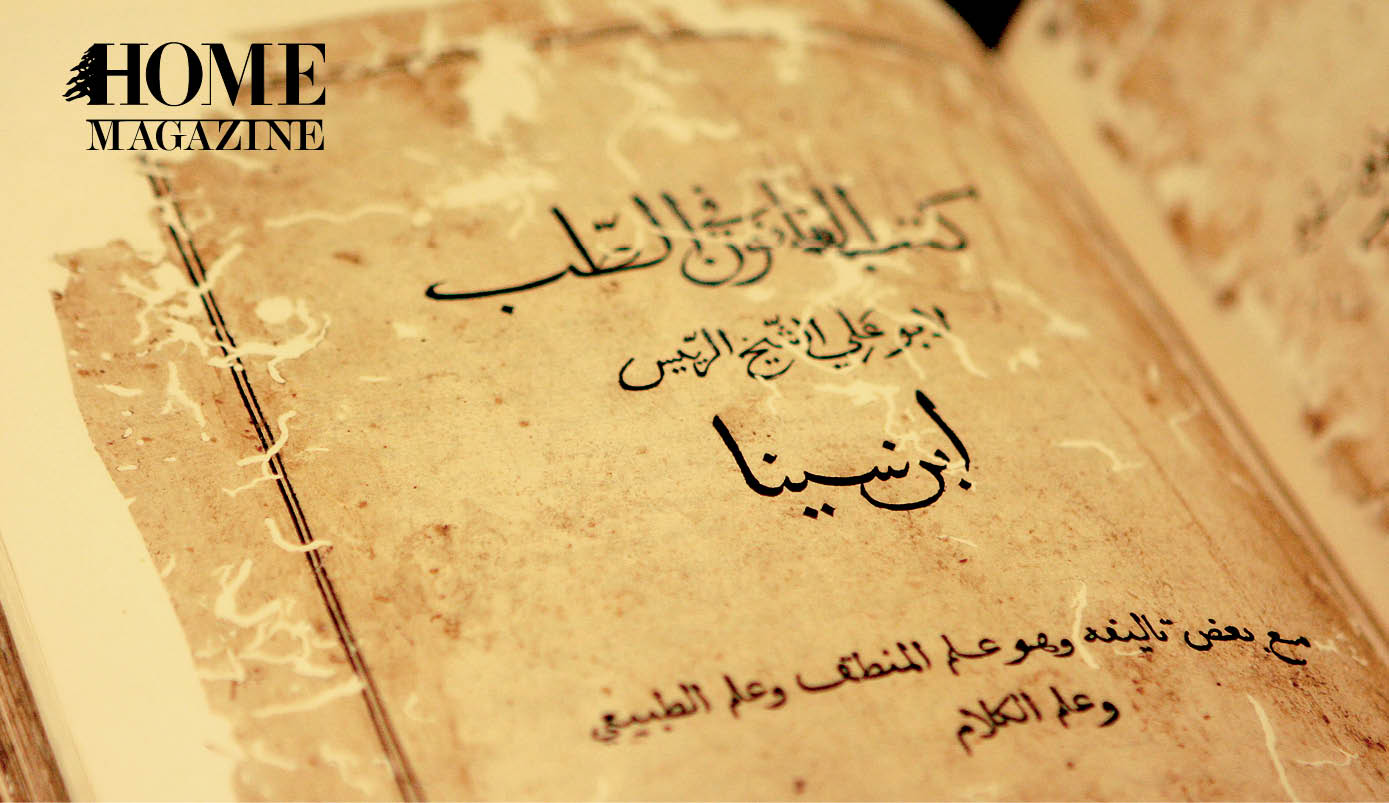 HOME
MAGAZINE
كتب القانون في الطّب
لابو علي الشّيخ الرّئيس
ابن سينا
مع بعض تاليفه وهو علم المنطق وعلم الطبيعي
وعلم الكلام